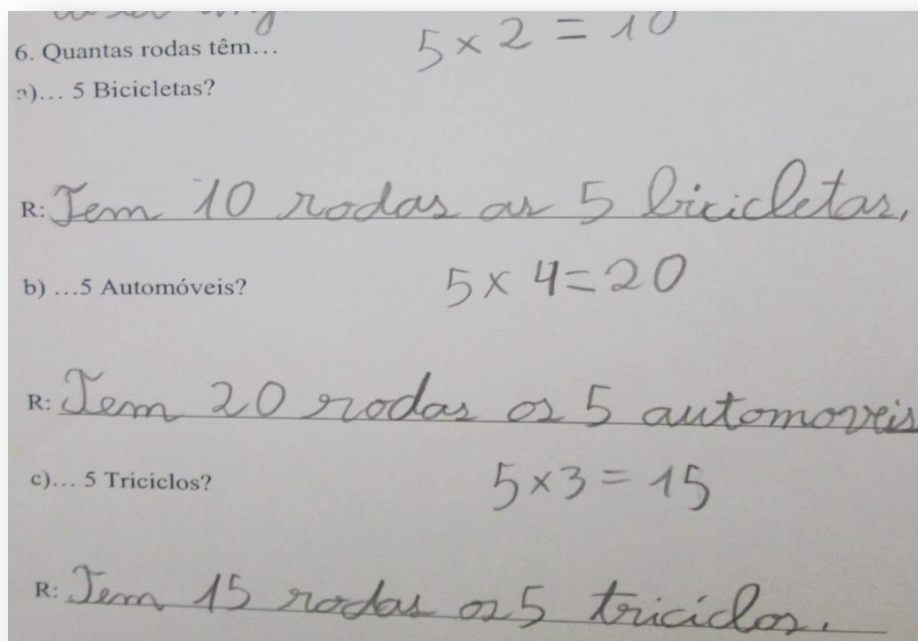 5 x 2 = 10
6. Quantas rodas têm...
a)... 5 Bicicletas?
R: Tem 10 rodas as 5 bicicletas.
b) ...5 Automóveis?
5 x 4 = 20
R: Tem 20 rodas os 5 automoveis
c)... 5 Triciclos?
5 x 3 = 15
R: Tem 15 rodas os 5 triciclos.